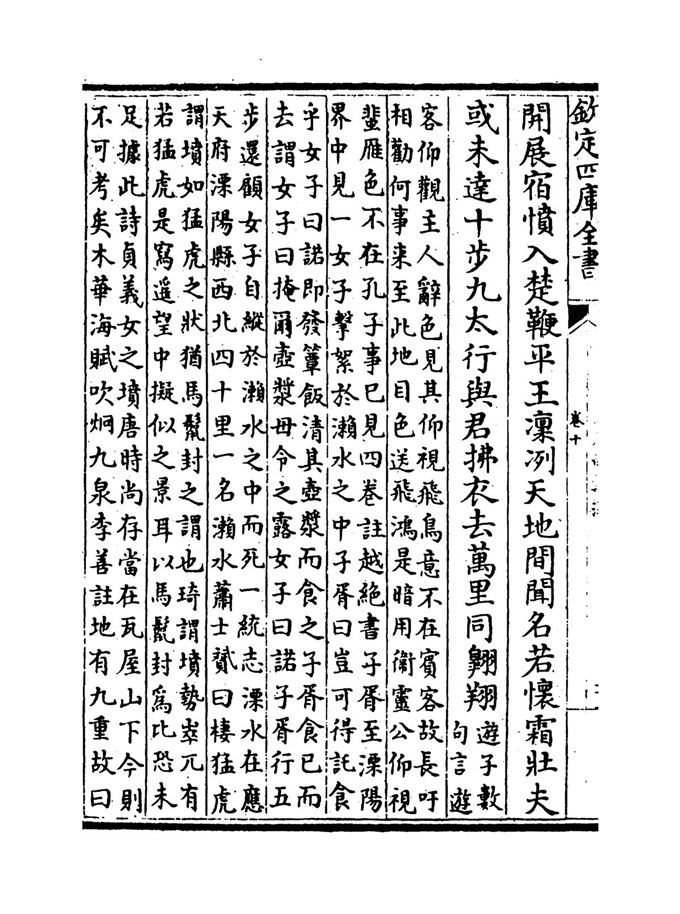 欽定四庫全書
卷十
開展宿憤入楚鞭平王凛冽天地間聞名若懷霜壯夫
或未達十步九太行與君拂衣去萬里同翺翔遊子數
句言遊
客仰觀主人辭色見其仰視飛鳥意不在賓客故長吁
相勸何事来至此地目色送飛鴻是暗用衛靈公仰視
蜚雁色不在孔子事已見四卷註越絶書子胥至溧陽
界中見一女子擊絮於瀨水之中子胥曰豈可得託食
乎女子曰諾即發簞飯清其壺漿而食之子胥食已而
去謂女子曰掩爾壺漿毋令之露女子曰諾子胥行五
步還顧女子自縱於瀨水之中而死一統志溧水在應
天府溧陽縣西北四十里一名瀨水蕭士贇曰棲猛虎
謂墳如猛虎之狀猶馬鬛封之謂也琦謂墳勢崒兀有
若猛虎是寫遥望中擬似之景耳以馬鬛封為比恐未
足據此詩貞義女之墳唐時尚存當在瓦屋山下今則
不可考矣木華海賦吹烱九泉李善註地有九重故曰